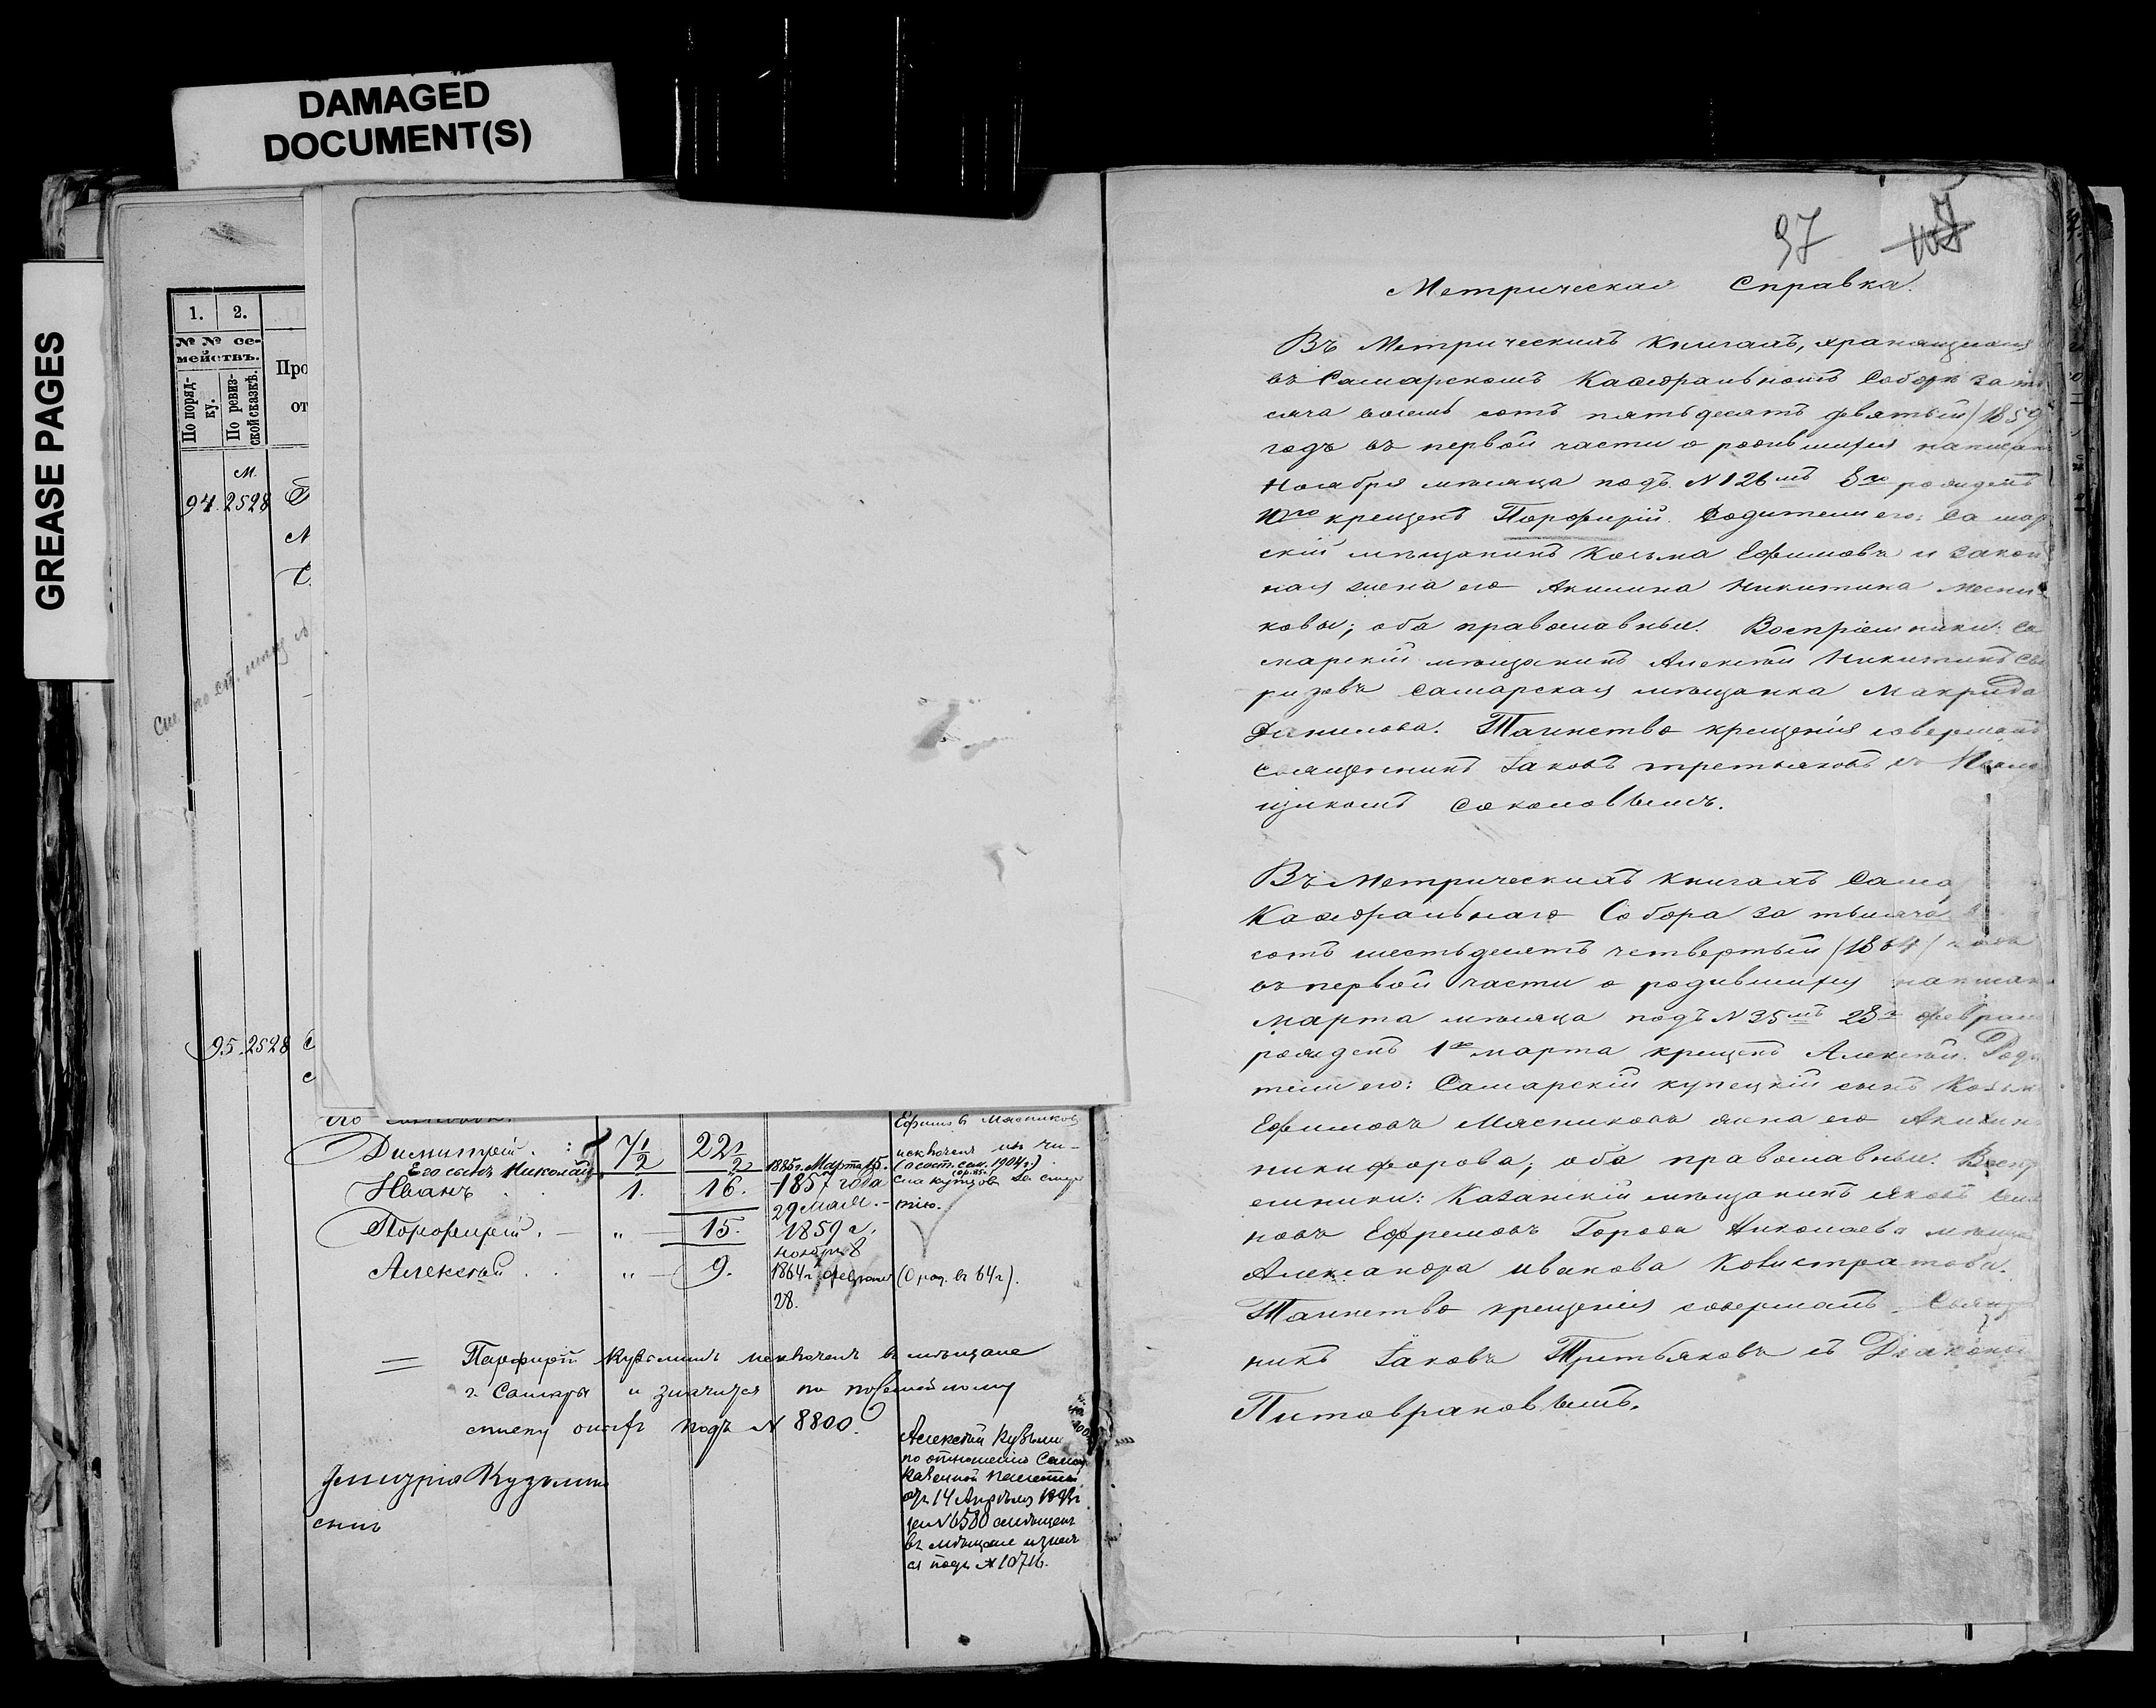 DAMAGED
DOCUMENT(S)
GREASE PAGES
1. 2.
№ № се-
мействъ.
По поряд-
ку.
По ревиз-
ской сказкѣ.
Про
от
М.
94. 2528
95. 2528
его
Ефимовъ Мясниковъ
Димитрій. 7 1/2 22 1/2 исключенъ изъ чи-
Его сынъ Николай 1885 г. Марта 15. (о сост. сем. 1904 г.)
Иванъ 1. 16. 1857 года сла купцовъ за смер
29 Мая. - тію.
Порфирій. — „ — 15. 1859 г.
ноября 8
Алексѣй „ — 9. 1864 г. февраля (О род. въ 64 г).
28.
= Парфирій Кузьминъ исключенъ въ мѣщане
г. Самары и значится по посемейному
списку подъ № 8800.
Алексѣй Кузьми
по отношенію Самар
Казенной Палаты
отъ 14 Апрѣля
за № 6580
въ мѣщане
ся подъ № 10716.
Кузьмин
97
Метрическая Справка.
Въ Метрическихъ книгахъ, хранящихся
въ Самарскомъ Каѳедральномъ Соборѣ за ты
сяча восемь сотъ пятьдесятъ девятый (1859
годъ въ первой части о родившихся написано
Ноября мѣсяца подъ № 126мъ 8го рожденъ
10го крещенъ Порфирій. Родители его: Самар
скій мѣщанинъ Косьма Ефимовъ и закон
ная жена его Акилина Никитина Мясни
ковы; оба православные. Воспріемники: Са
марскій мѣщанинъ Алексѣй Никитинъ Сы
ризовъ самарская мѣщанка Макрида
Данилова. Таинство крещенія совершалъ
Священникъ Іаковъ Третьяковъ съ
щикомъ Соколовымъ.
Въ Метрическихъ книгахъ Сама
Каѳедральнаго Собора за тысяча
сотъ шестьдесятъ четвертый (1864) годъ
въ первой части о родившихся написано
Марта мѣсяца подъ № 35мъ 28го феврал
рожденъ 1го марта крещенъ Алексѣй. Роди
тели его: Самарскій купецкій сынъ Козьм
Ефимовъ Мясниковъ жена его Акилин
Никифорова; оба православные. Воспр
емники: Казанскій мѣщанинъ Яковъ Сем
новъ Ефремовъ Города Николаева мѣща
Александра Иванова Ковистратова.
Таинство крещенія совершалъ Свящ
никъ Іаковъ Третьяковъ съ Діакономъ
Питоврановымъ.